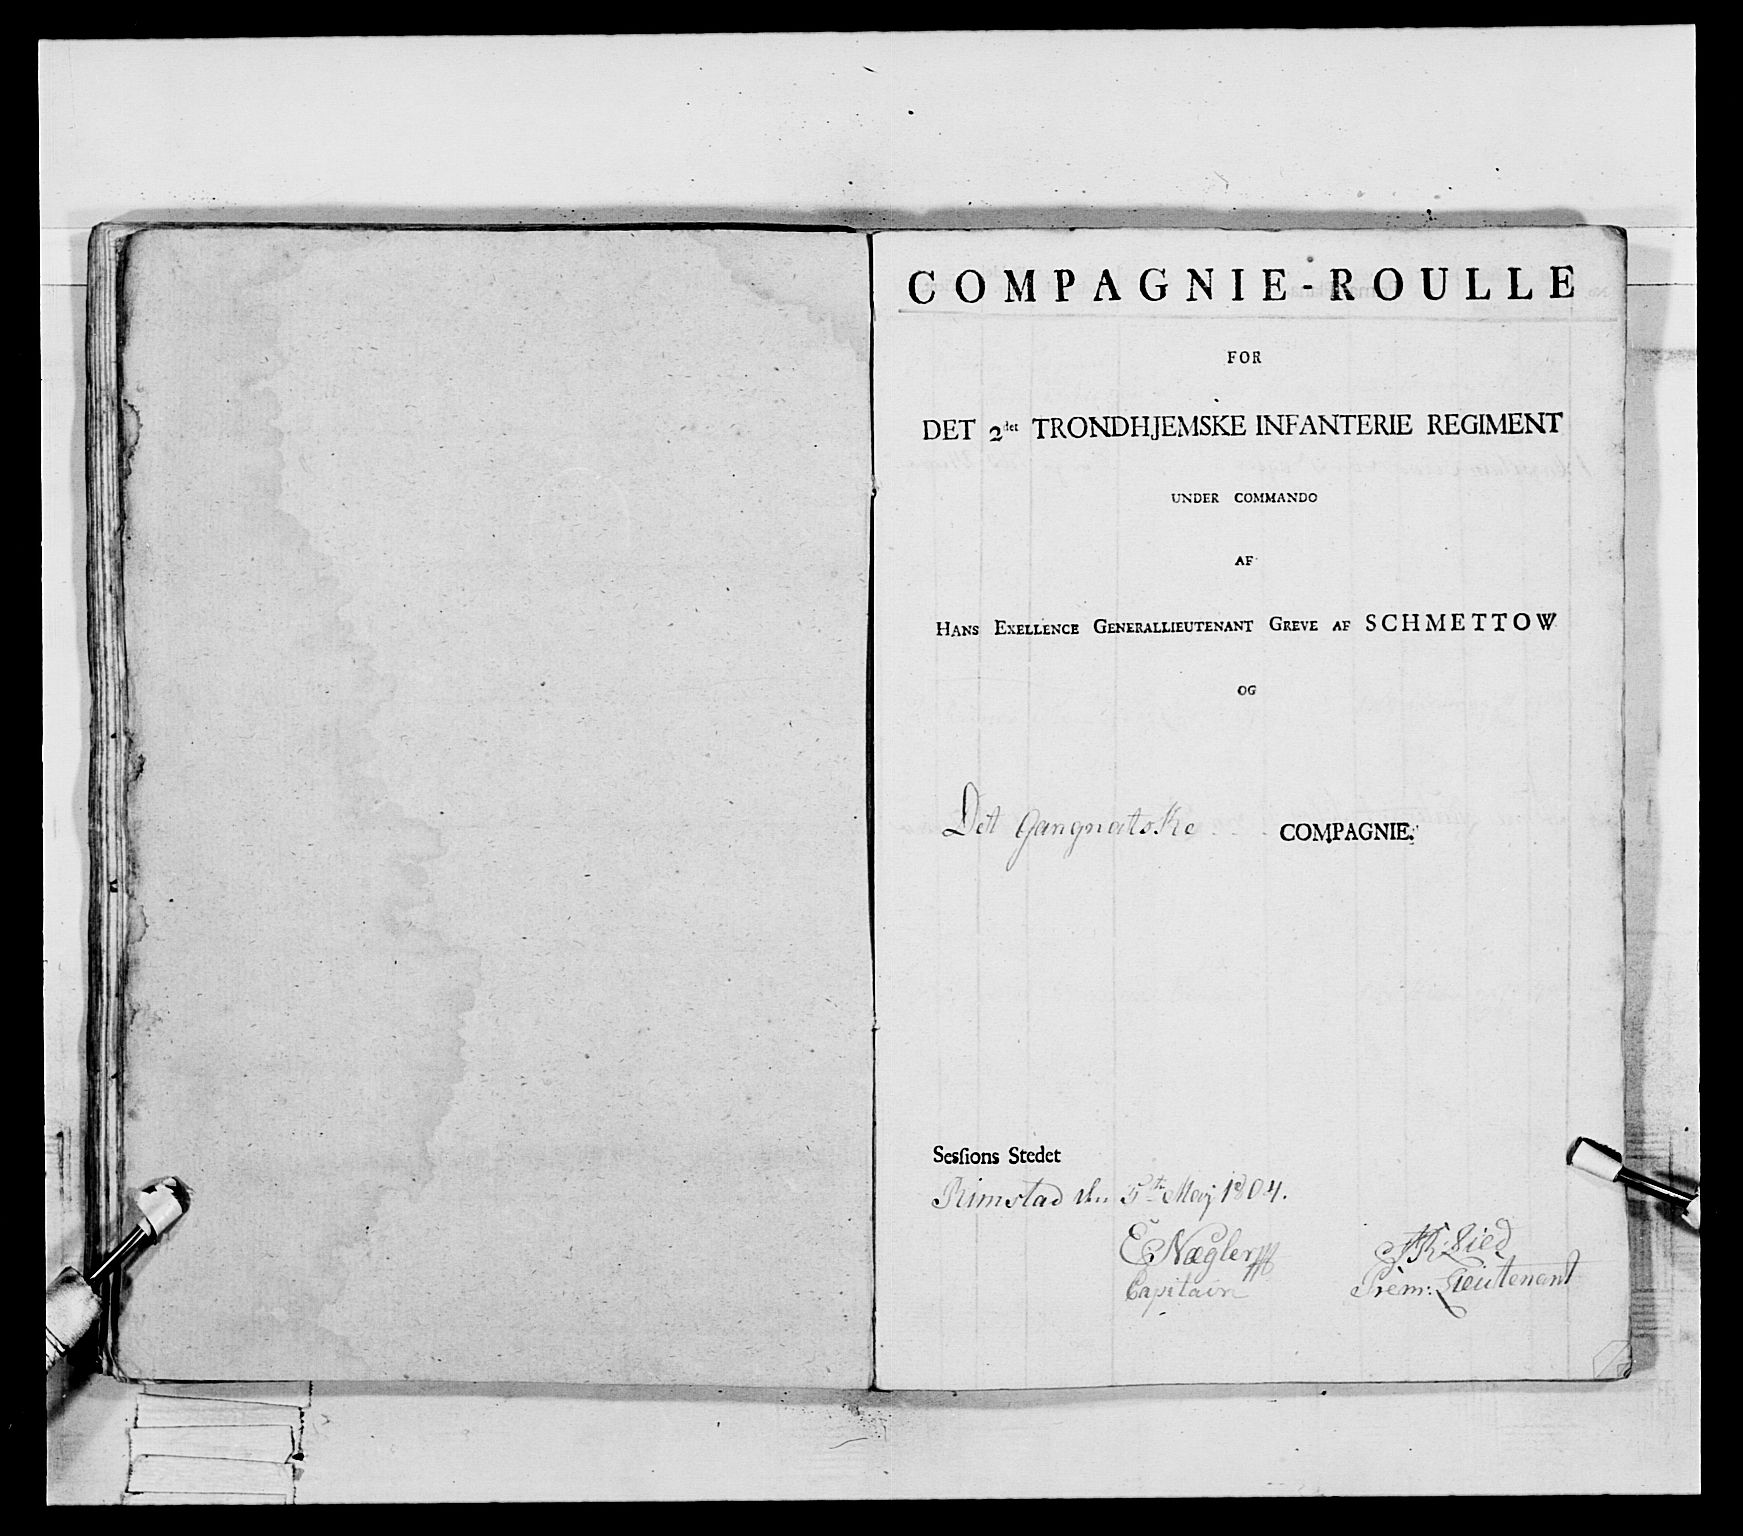 COMPAGNIE-ROULLE
FOR
DET 2det TRONDHJEMSKE INFANTERIE REGIMENT
UNDER COMMANDO
AF
HANS EXELLENCE GENERALLIEUTENANT GREVE AF SCHMETTOW
OG
Det Gangnatske COMPAGNIE.
Sesſions Stedet
Rimstad den 5th May 1804.
E Nægler
Capitain
Prem: Lieutenant